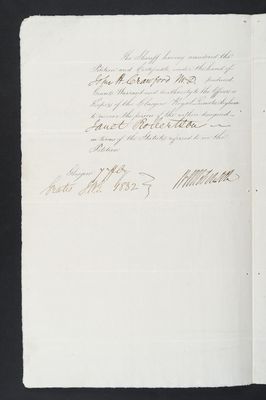 The Sheriff having considered the
Petition and Certificate under the hand of
John A. Crawford M.D. produced
Grants Warrant and authority to the Officers
Keepers of the Glasgow Royal Lunatic Asylum
to receive the person of the within designed
Janet Robertson
in terms of the Statute referred to in the
Petition
Glasgow